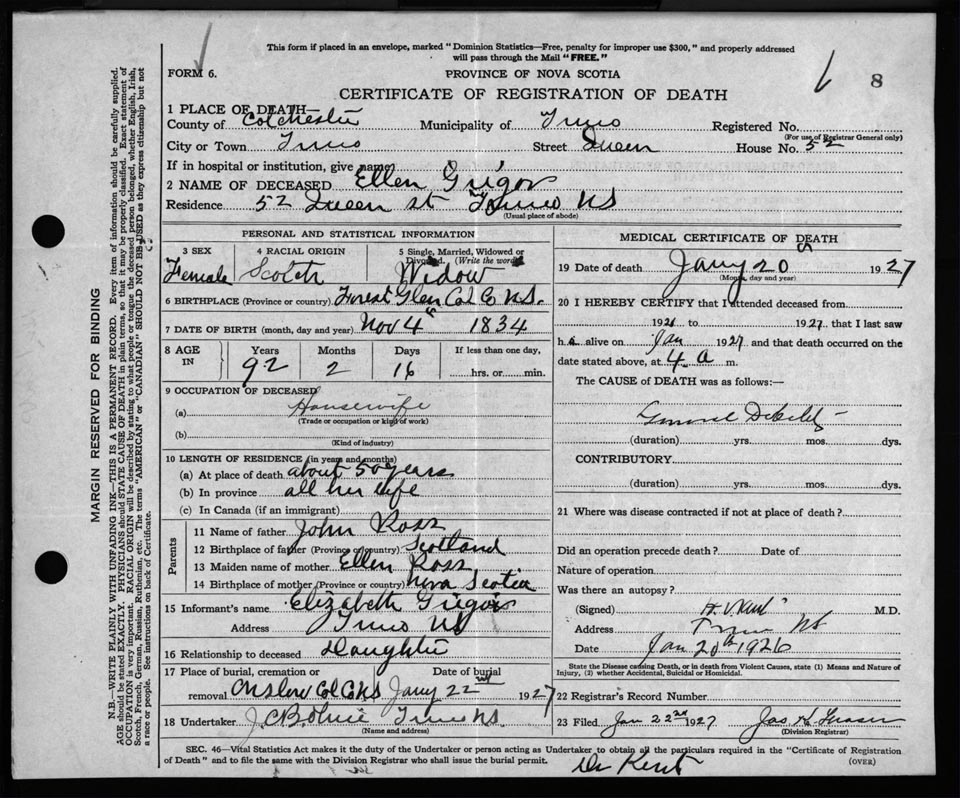 This form if placed in an envelope, marked "Dominion Statistics—Free, penalty for improper use $300," and properly addressed
will pass through the Mail "FREE."
FORM 6.
PROVINCE OF NOVA SCOTIA
8
CERTIFICATE OF REGISTRATION OF DEATH
1 PLACE OF DEATH—
County of Colchester Municipality of Truro Registered No.
(For use of Registrar General only)
City or Town Truro Street Queen House No. 52
If in hospital or institution, give name
2 NAME OF DECEASED Ellen Grigor
Residence 52 Queen st Truro NS
(Usual place of abode)
PERSONAL AND STATISTICAL INFORMATION
3 SEX 4 RACIAL ORIGIN 5 Single, Married, Widowed or
Divorced. (Write the word)
Female Scotch Widow
6 BIRTHPLACE (Province or country) Forest Glen Col C NS.
7 DATE OF BIRTH (month, day and year) Nov 4 1834
8 AGE IN Years Months Days If less than one day,
92 2 16 hrs. or min.
9 OCCUPATION OF DECEASED
(a) Housewife
(Trade or occupation or kind of work)
(b)
(Kind of industry)
10 LENGTH OF RESIDENCE (in years and months)
(a) At place of death about 50 years
(b) In province all her life
(c) In Canada (if an immigrant)
Parents
11 Name of father John Ross
12 Birthplace of father (Province or country) Scotland
13 Maiden name of mother Ellen Ross
14 Birthplace of mother (Province or country) Nova Scotia
15 Informant's name Elizabeth Grigor
Address Truro NS
16 Relationship to deceased Daughter
17 Place of burial, cremation or Date of burial
removal Onslow Col C NS Jany 22nd 1927
18 Undertaker Truro NS
(Name and address)
MEDICAL CERTIFICATE OF DEATH
19 Date of death Jany 20 1927
(Month, day and year)
20 I HEREBY CERTIFY that I attended deceased from
1926 to 1927 that I last saw
h alive on Jan 1927 and that death occurred on the
date stated above, at 4 a m.
The CAUSE of DEATH was as follows:—
General Debility
(duration) yrs. mos. dys.
CONTRIBUTORY
(duration) yrs. mos. dys.
21 Where was disease contracted if not at place of death?
Did an operation precede death? Date of
Nature of operation
Was there an autopsy?
(Signed) H.V. Kent M.D.
Address Truro NS
Date Jan 20th 1926
State the Disease causing Death, or in death from Violent Causes, state (1) Means and Nature of
Injury, (2) whether Accidental, Suicidal or Homicidal.
22 Registrar's Record Number
23 Filed Jan 22nd 1927 Jas
(Division Registrar)
SEC. 46—Vital Statistics Act makes it the duty of the Undertaker or person acting as Undertaker to obtain all the particulars required in the "Certificate of Registration
of Death" and to file the same with the Division Registrar who shall issue the burial permit.
(OVER)
Dr Kent
MARGIN RESERVED FOR BINDING
N.B.—WRITE PLAINLY WITH UNFADING INK—THIS IS A PERMANENT RECORD. Every item of information should be carefully supplied.
AGE should be stated EXACTLY. PHYSICIANS should STATE CAUSE OF DEATH in plain terms, so that it may be properly classified. Exact statement of
OCCUPATION is very important. RACIAL ORIGIN will be described by stating to what people or tongue the deceased person belonged, whether English, Irish,
Scotch, French, German, Russian, Ruthenian, etc. The terms "AMERICAN" or "CANADIAN" SHOULD NOT BE USED as they express citizenship but not
a race or people. See instructions on back of Certificate.